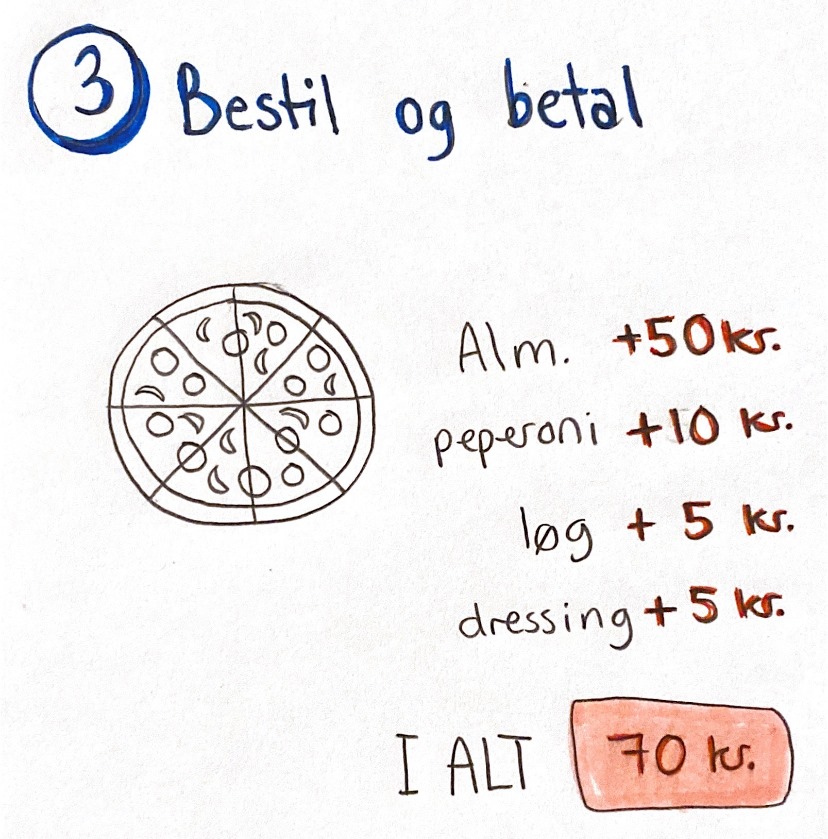 3 Bestil og betal
Alm. +50 kr.
peperoni +10 kr.
løg + 5 kr.
dressing + 5 kr.
I ALT 70 kr.